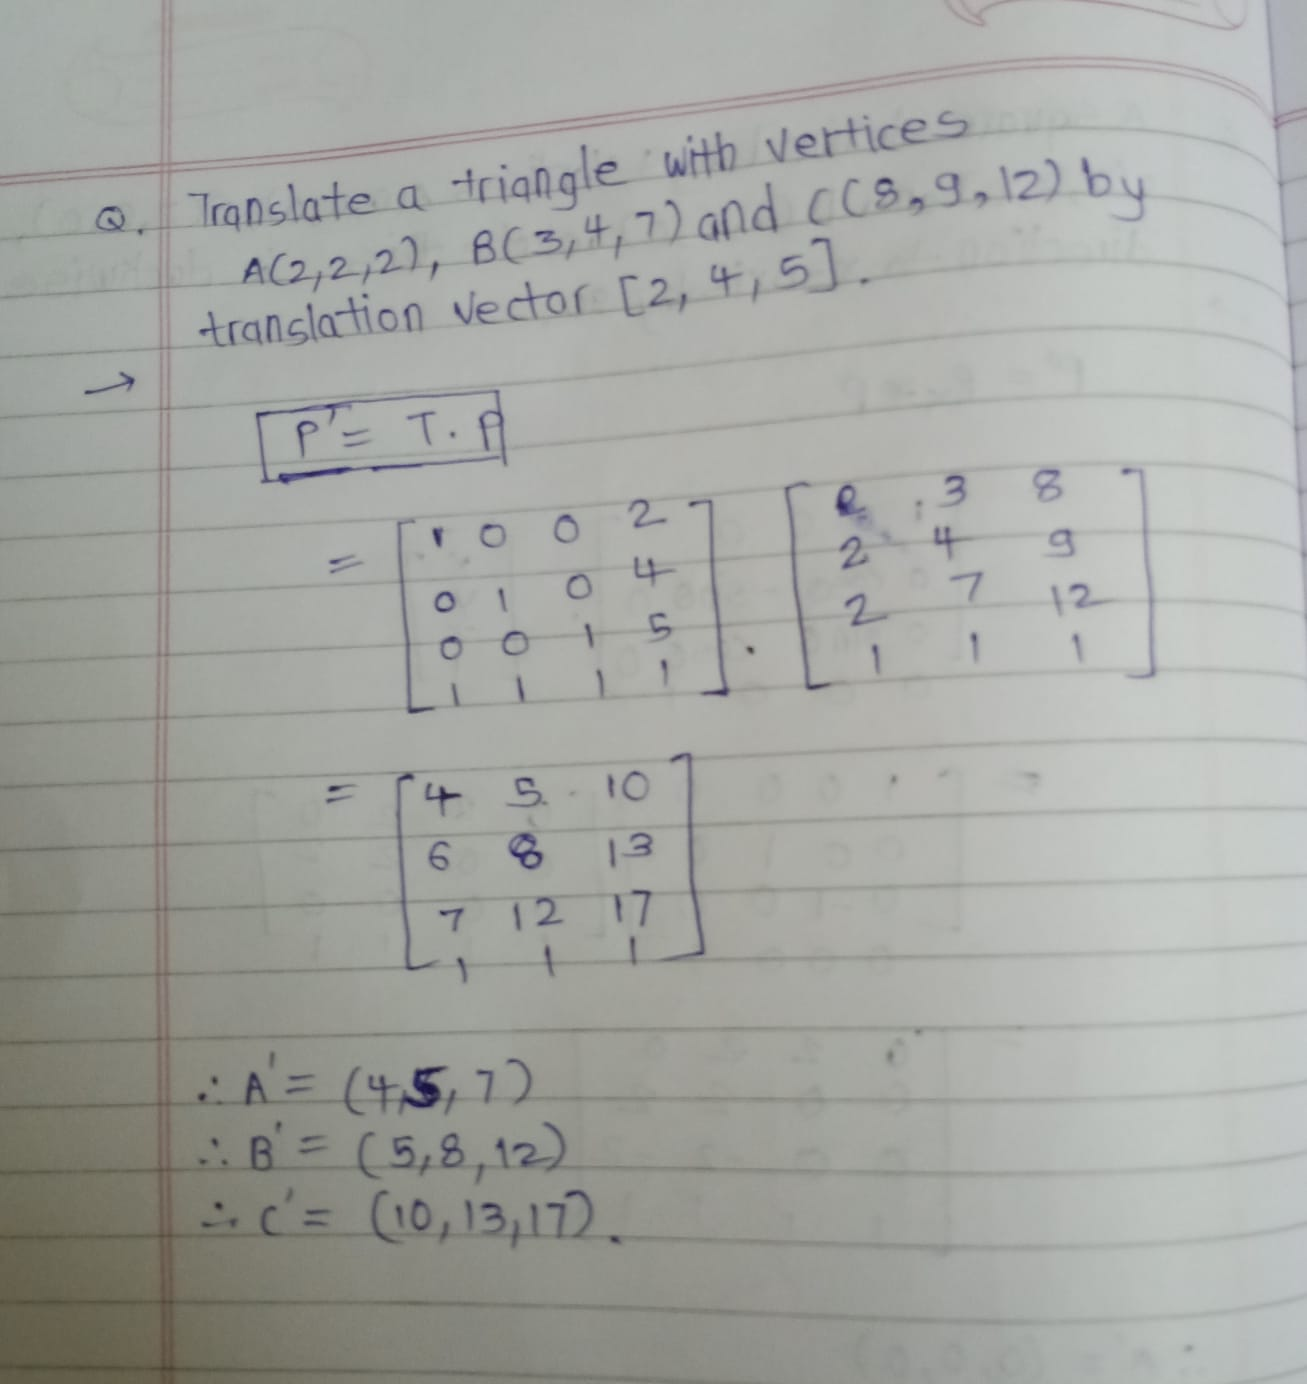 Q. Translate a triangle with vertices
A(2,2,2), B(3,4,7) and C(8,9,12) by
translation vector [2, 4, 5].
→
P' = T. P
= [ 1 0 0 2 ] . [ 2 3 8 ]
0 1 0 4 2 4 9
0 0 1 5 2 7 12
1 1 1 1 1 1 1
= [ 4 5 10 ]
6 8 13
7 12 17
1 1 1
∴ A' = (4,5,7)
∴ B' = (5,8,12)
∴ C' = (10,13,17).